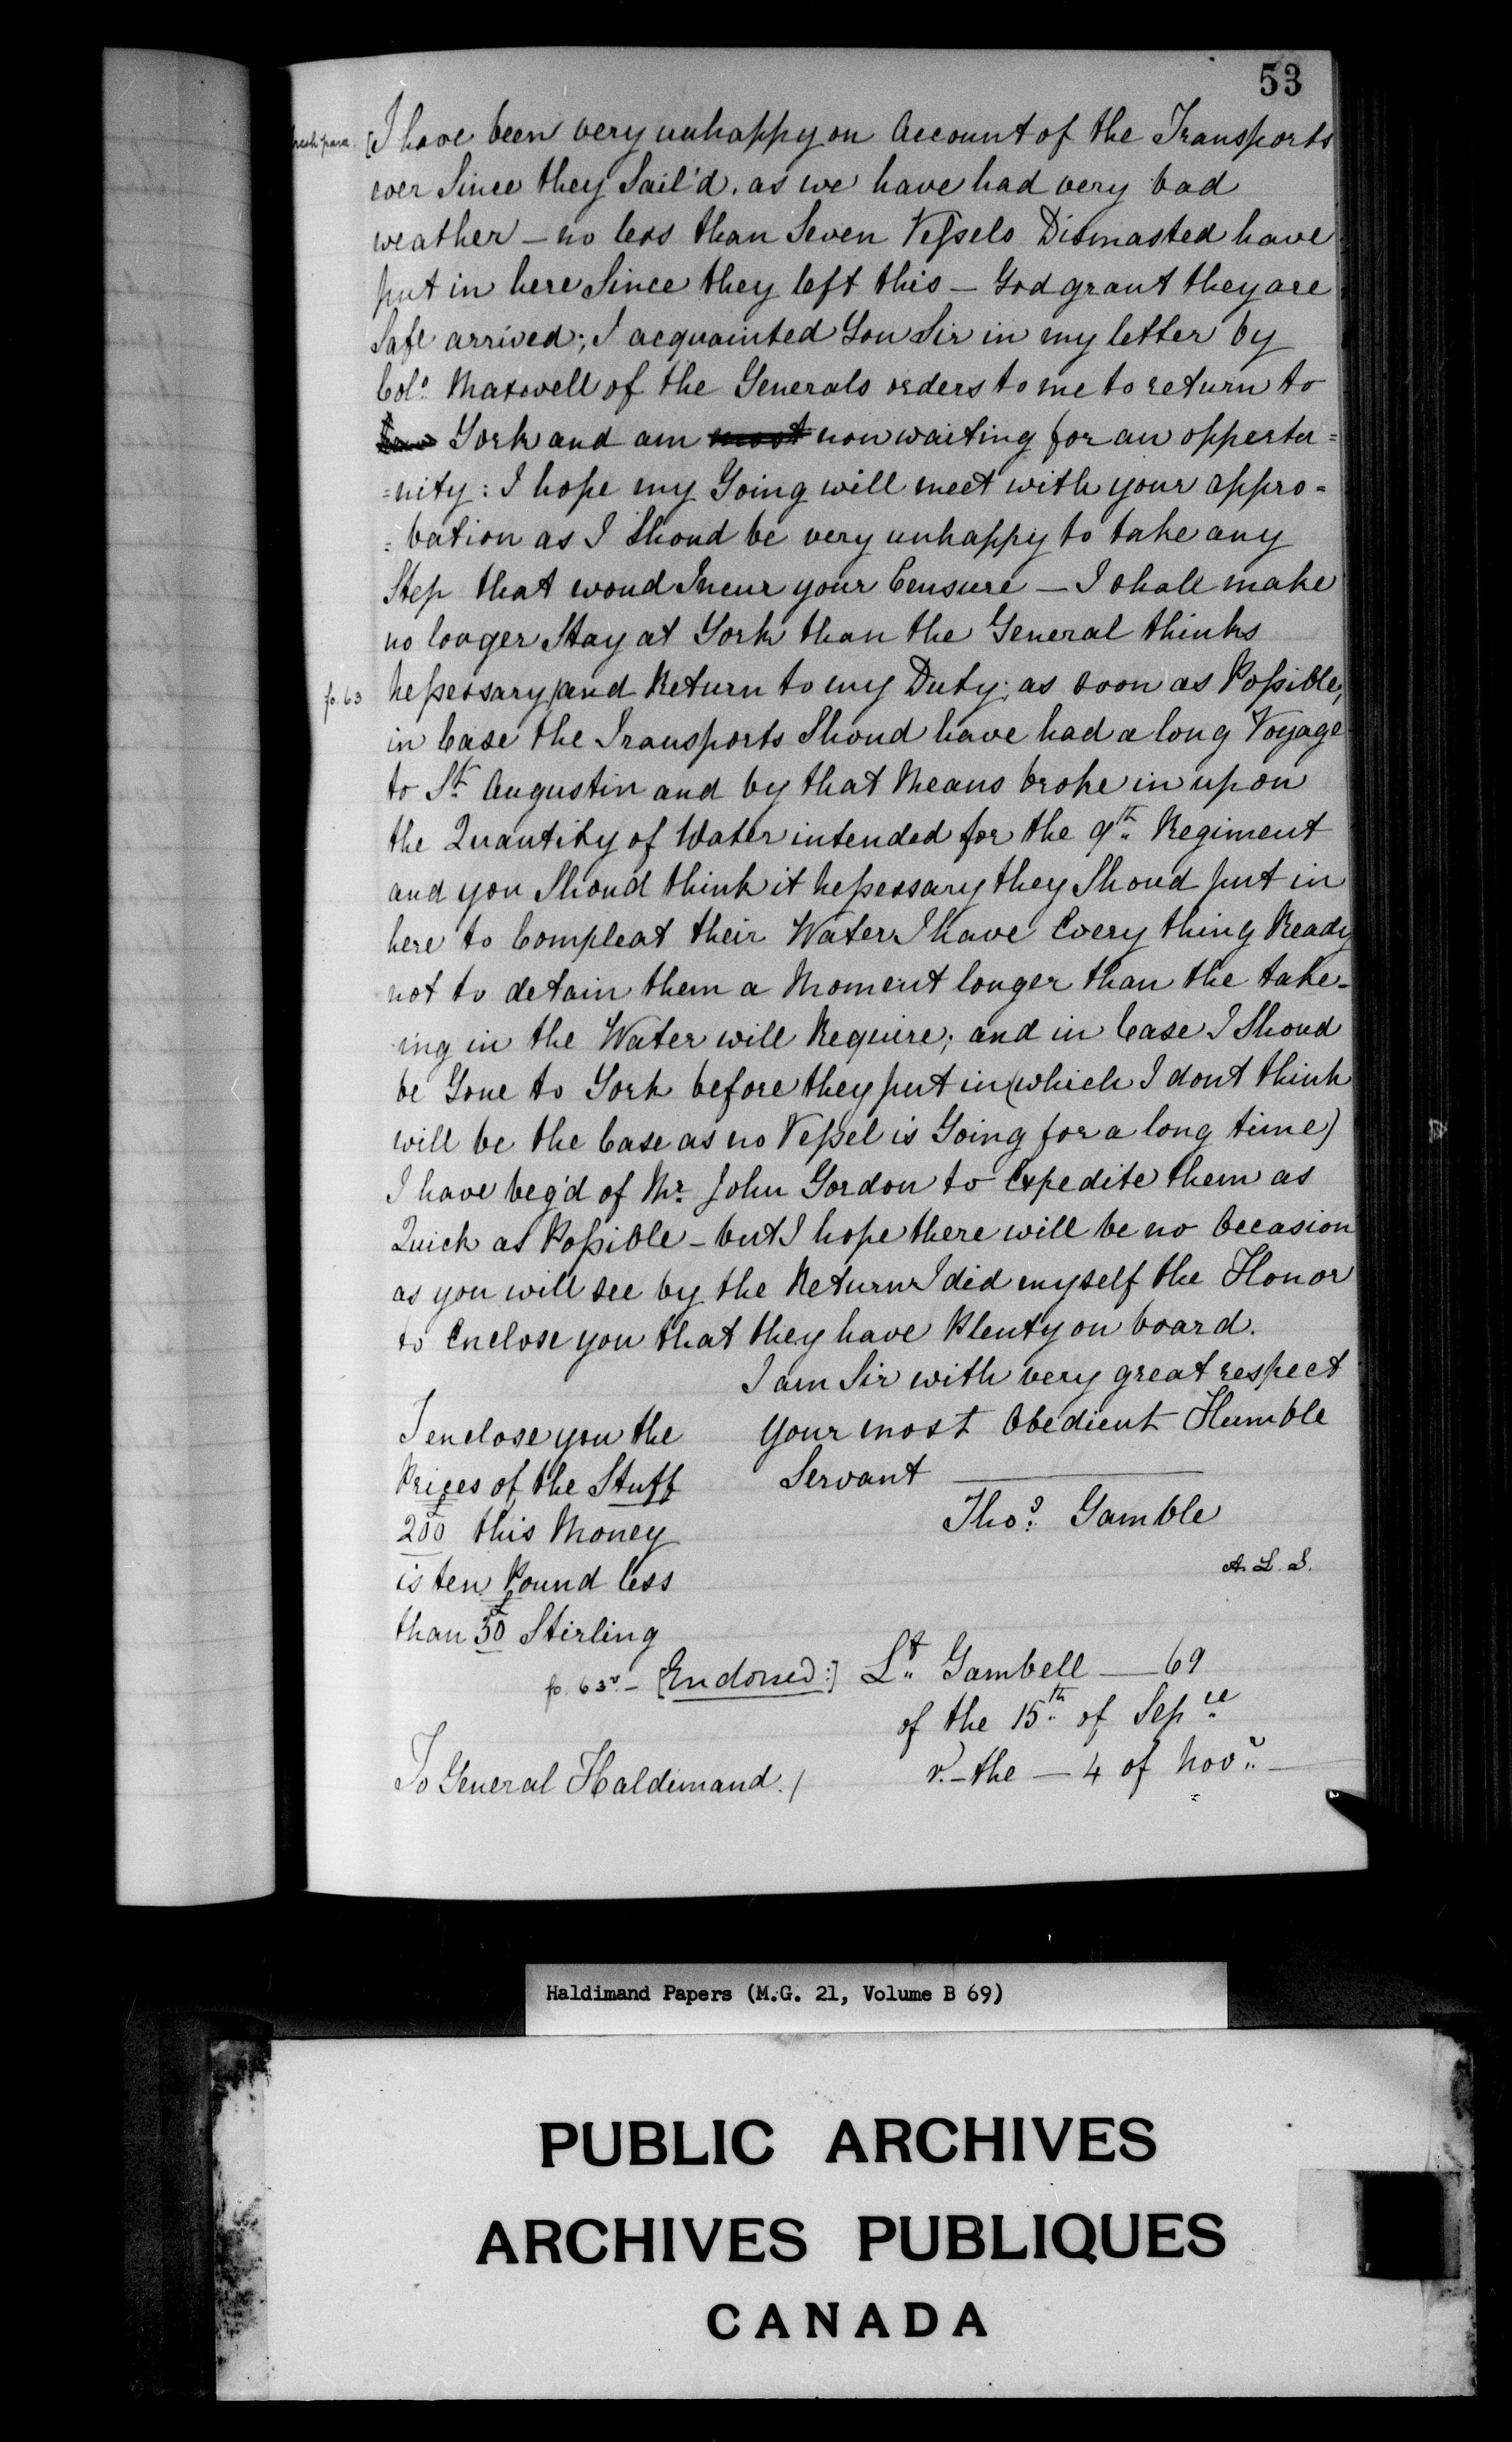 53
fresh para. [I have been very unhappy on Account of the Transports
ever Since they Sail'd, as we have had very bad
weather — no less than Seven Vessels Dismasted have
put in here Since they left this — God grant they are
Safe arrived; I acquainted You Sir in my letter by
Colo. Maxwell of the Generals orders to me to return to
York and am most now waiting for an opportu=
=nity: I hope my Going will meet with your appro=
=bation as I Shoud be very unhappy to take any
Step that woud Incur your Censure — I shall make
no longer Stay at York than the General thinks
fo. 63 nessessary, and Return to my Duty; as soon as Possible,
in Case the Transports Shoud have had a long Voyage
to St. Augustin and by that Means broke in upon
the Quantity of Water intended for the 9th. Regiment
and you Shoud think it nessessary they Shoud put in
here to Compleat their Water I have Every thing Ready
not to detain them a Moment longer than the take-
ing in the Water will Require; and in Case I Shoud
be Gone to York before they put in (which I dont think
will be the Case as no Vessel is Going for a long time)
I have beg'd of Mr. John Gordon to Expedite them as
Quick as Possible — but I hope there will be no Occasion
as you will see by the Return I did myself the Honor
to Enclose you that they have Plenty on board.
I am Sir with very great respect
your most Obedient Humble
Servant
Thos. Gamble
A. L. S.
I enclose you the
Prices of the Stuff
£200 this Money
is ten Pound less
than £30 Stirling
fo. 63v. — [Endorsed:] Lt. Gambell — 69
of the 15th. of Sepre
r. — the — 4 of Novr. —
To General Haldimand. /
Haldimand Papers (M.G. 21, Volume B 69)
PUBLIC ARCHIVES
ARCHIVES PUBLIQUES
CANADA